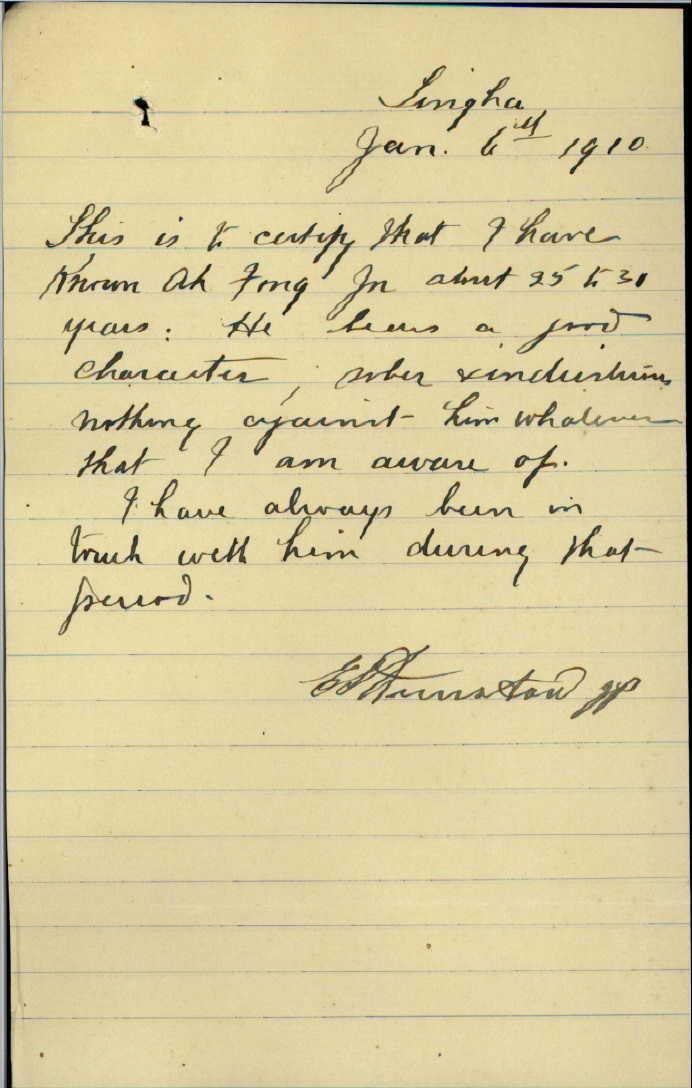 Singha
Jan. 6th 1910
This is to certify that I have
known Ah Fong for about 25 to 30
years: He bears a good
character, sober & industrious
nothing against him whatever
that I am aware of.
I have always been in
touch with him during that
period.
JP